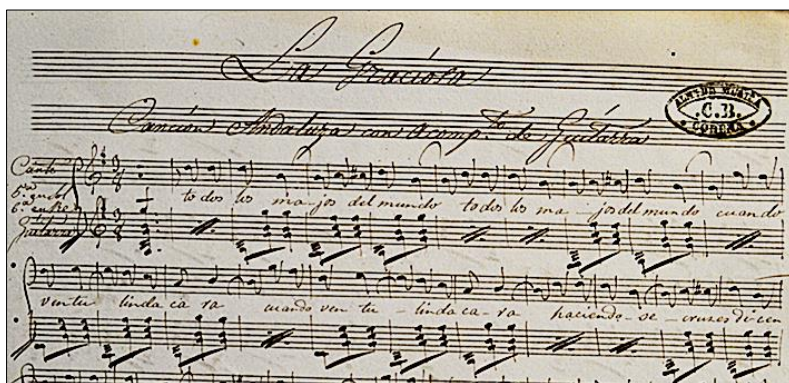 La Graciosa
Canción Andaluza con acomp.to de Guitarra
ALM. DE MUSICA
C.B.
CORUÑA
Canto
Guitarra
todos los ma-jos del mundo todos los ma-jos del mundo cuando
ven tu linda ca ra cuando ven tu - linda ca-ra haciendo-se-cruces dicen